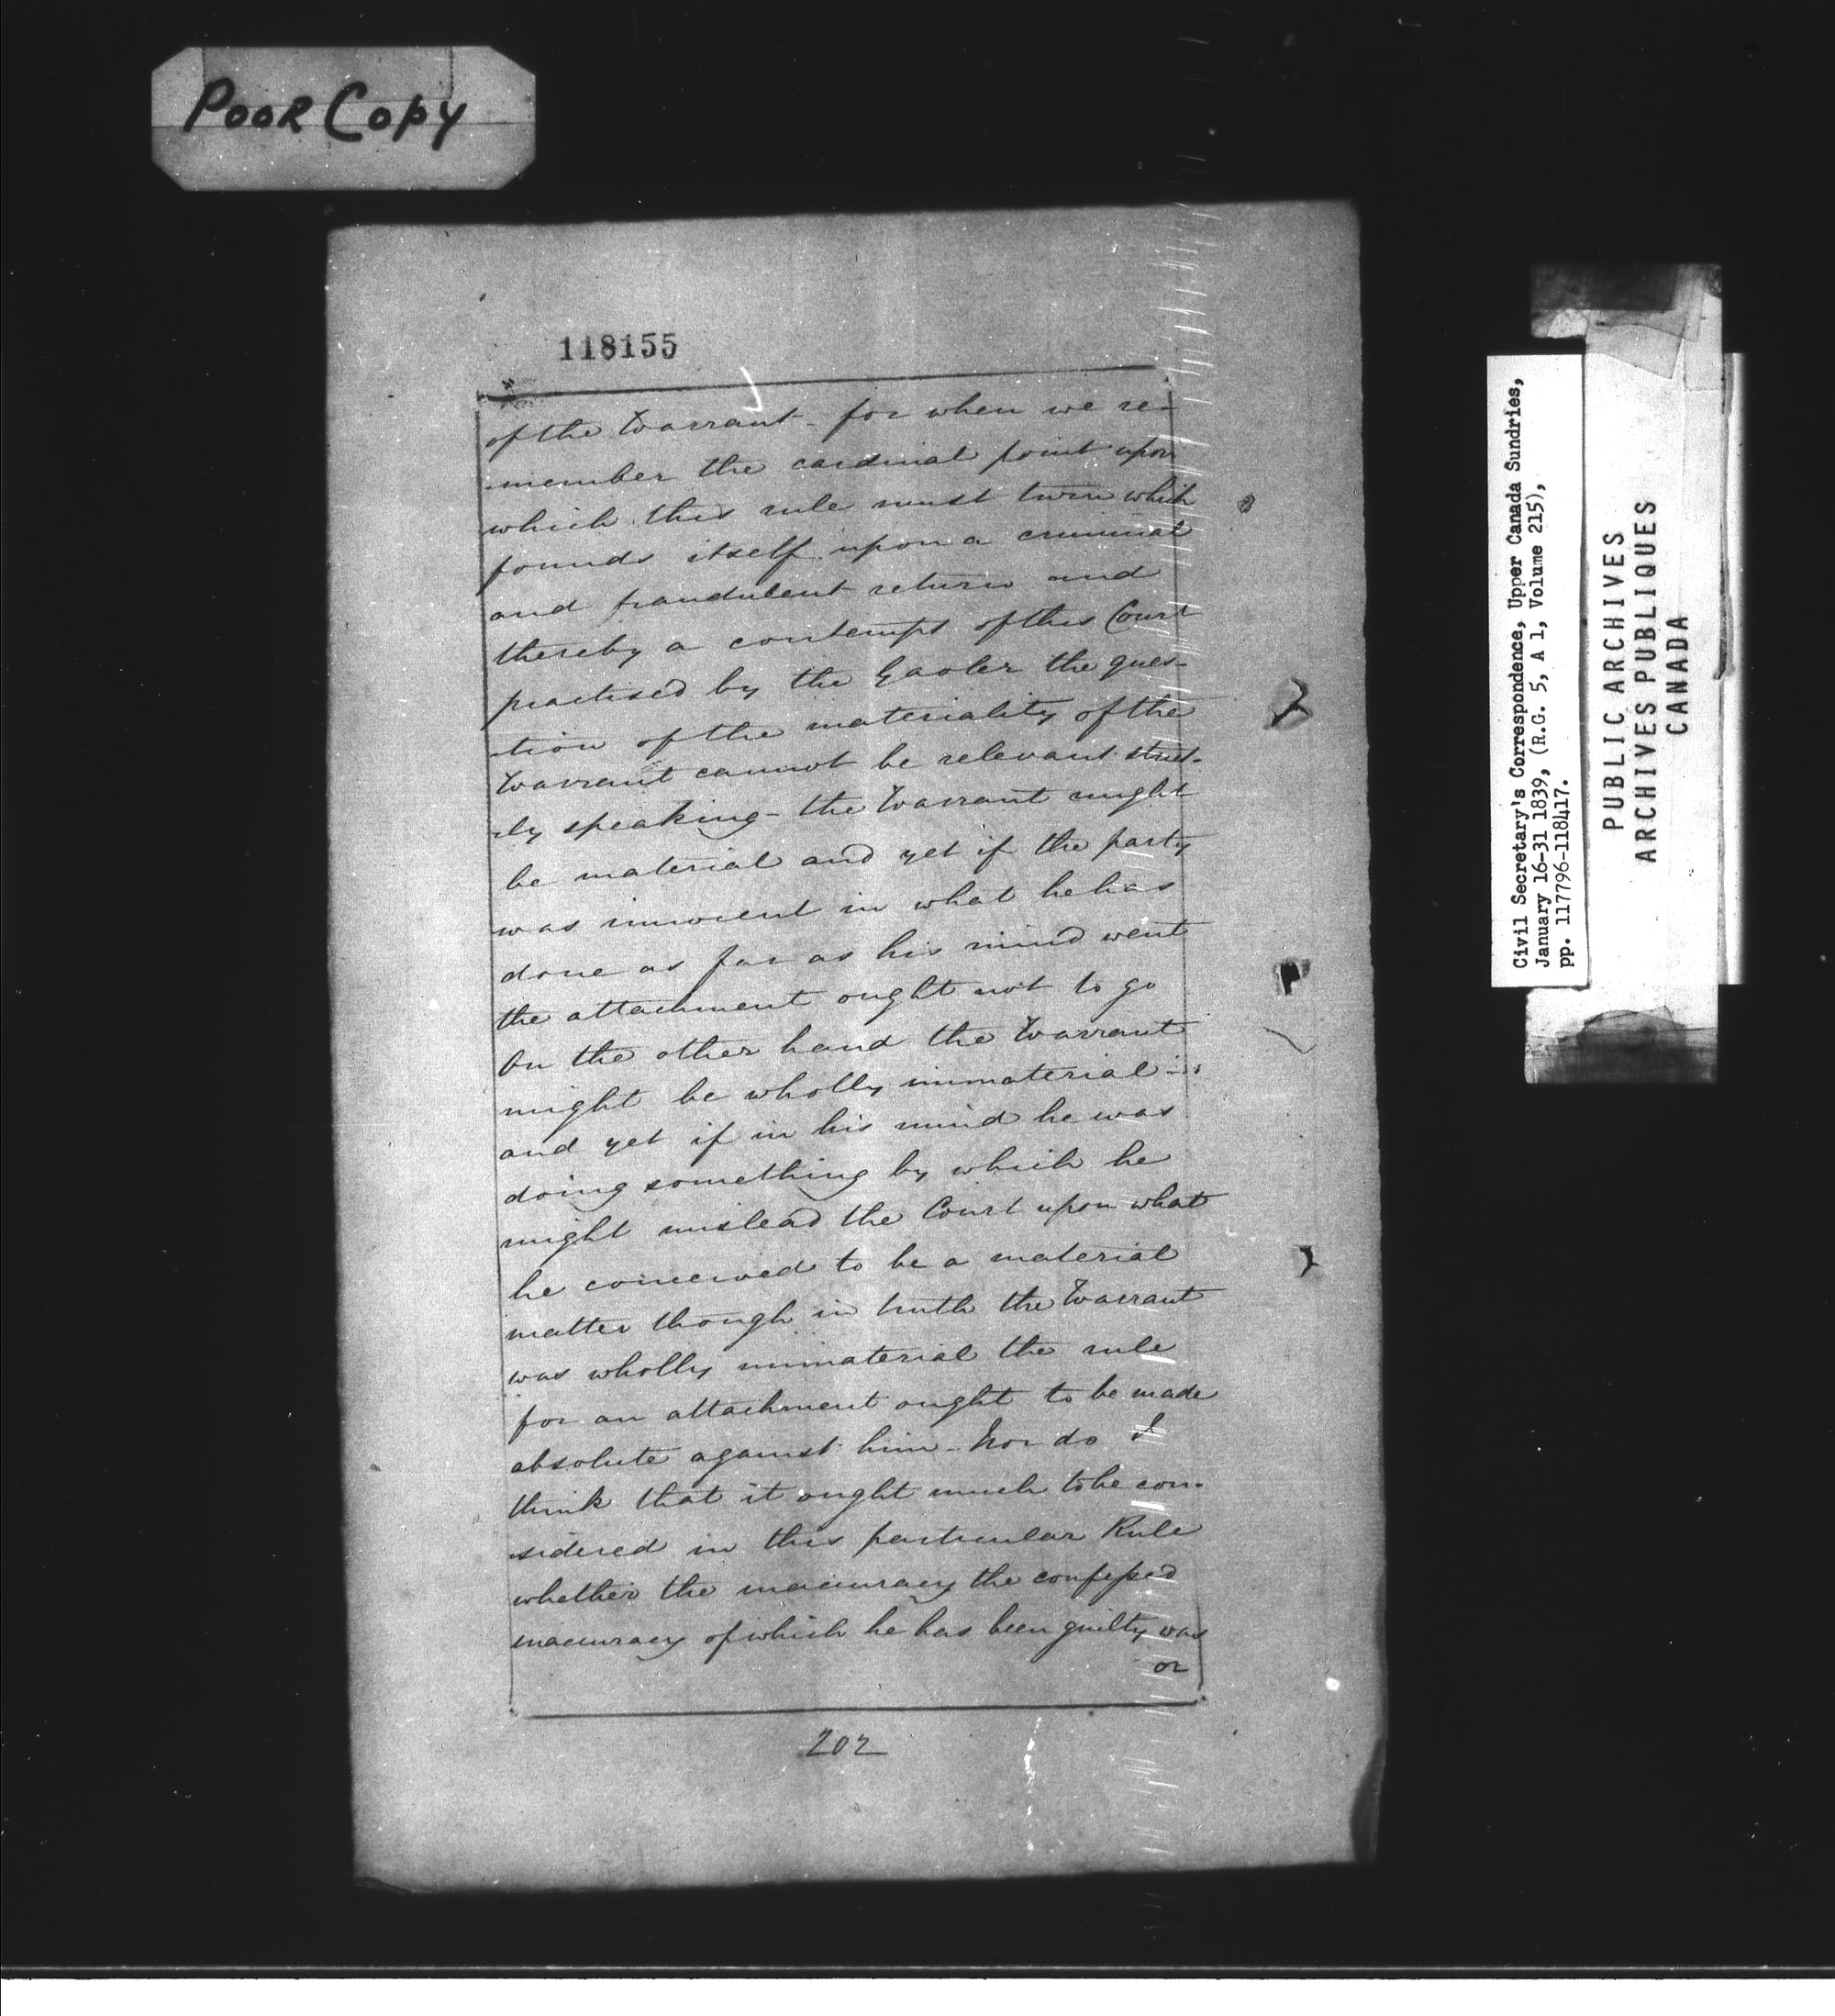 POOR COPY
118155
of the Warrant - for when we re-
-member the cardinal point upon
which this rule must turn which
founds itself upon a criminal
and fraudulent return and
thereby a contempt of this Court
practised by the Gaoler the ques-
-tion of the materiality of the
Warrant cannot be relevant strict-
-ly speaking - the Warrant might
be material and yet if the party
was innocent in what he has
done as far as his mind went
the attachment ought not to go
On the other hand the Warrant
might be wholly immaterial
and yet if in his mind he was
doing something by which he
might mislead the Court upon what
he conceived to be a material
matter though in truth the Warrant
was wholly immaterial the rule
for an attachment ought to be made
absolute against him - Nor do I
think that it ought much to be con-
-sidered in this particular Rule
whether the inaccuracy the confessed
inaccuracy of which he has been guilty was
or
202
Civil Secretary's Correspondence, Upper Canada Sundries,
January 16-31 1839, (R.G. 5, A 1, Volume 215),
pp. 117796-118417.
PUBLIC ARCHIVES
ARCHIVES PUBLIQUES
CANADA